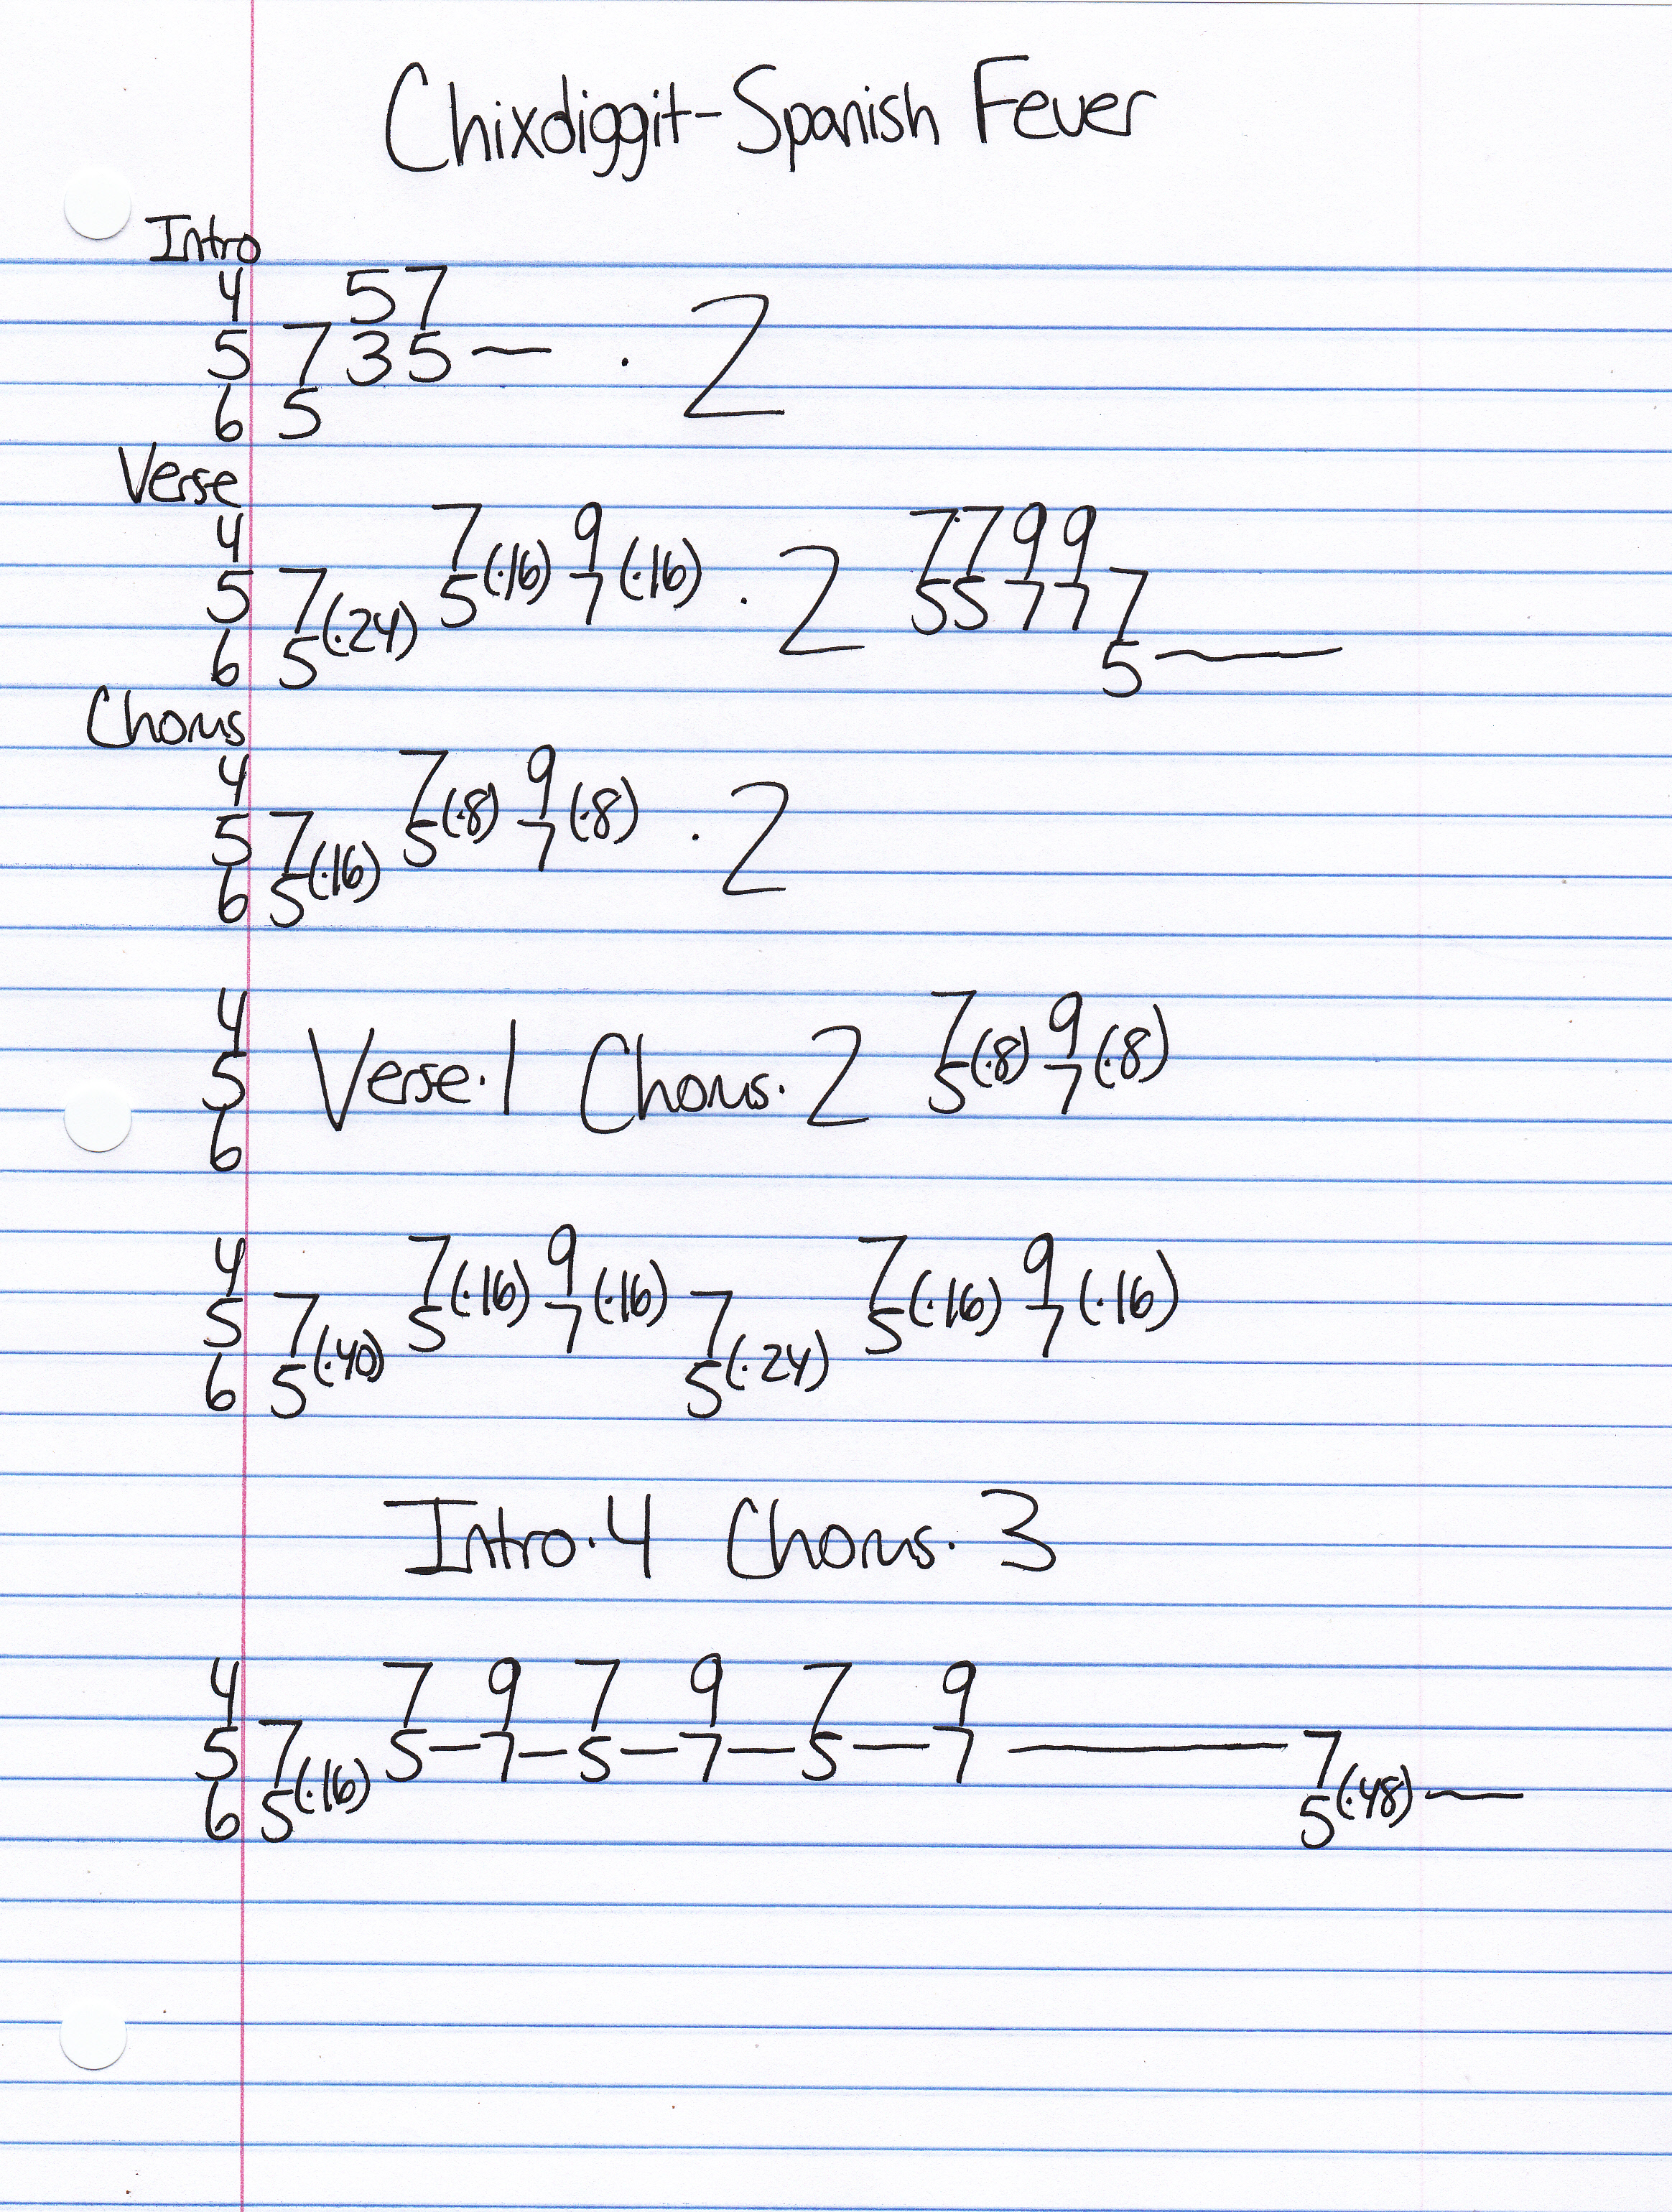 Chixdiggit-Spanish Fever
Intro
4 57
5 735— . 2
6 5
Verse
4 7 9 7799
5 7 5(·16) 7(·16) . 2 5577 7
6 5(·24) 5—
Chorus
4 7 9
5 7 5(·8) 7(·8) . 2
6 5(·16)
4 7 9
5 Verse·1 Chorus·2 5(·8) 7(·8)
6
4 7 9 7 9
5 7 5(·16) 7(·16) 7 5(·16) 7(·16)
6 5(·40) 5(·24)
Intro·4 Chorus·3
4 7 9 7 9 7 9
5 7 5—7—5—7—5—7 — 7
6 5(·16) 5(·48)—